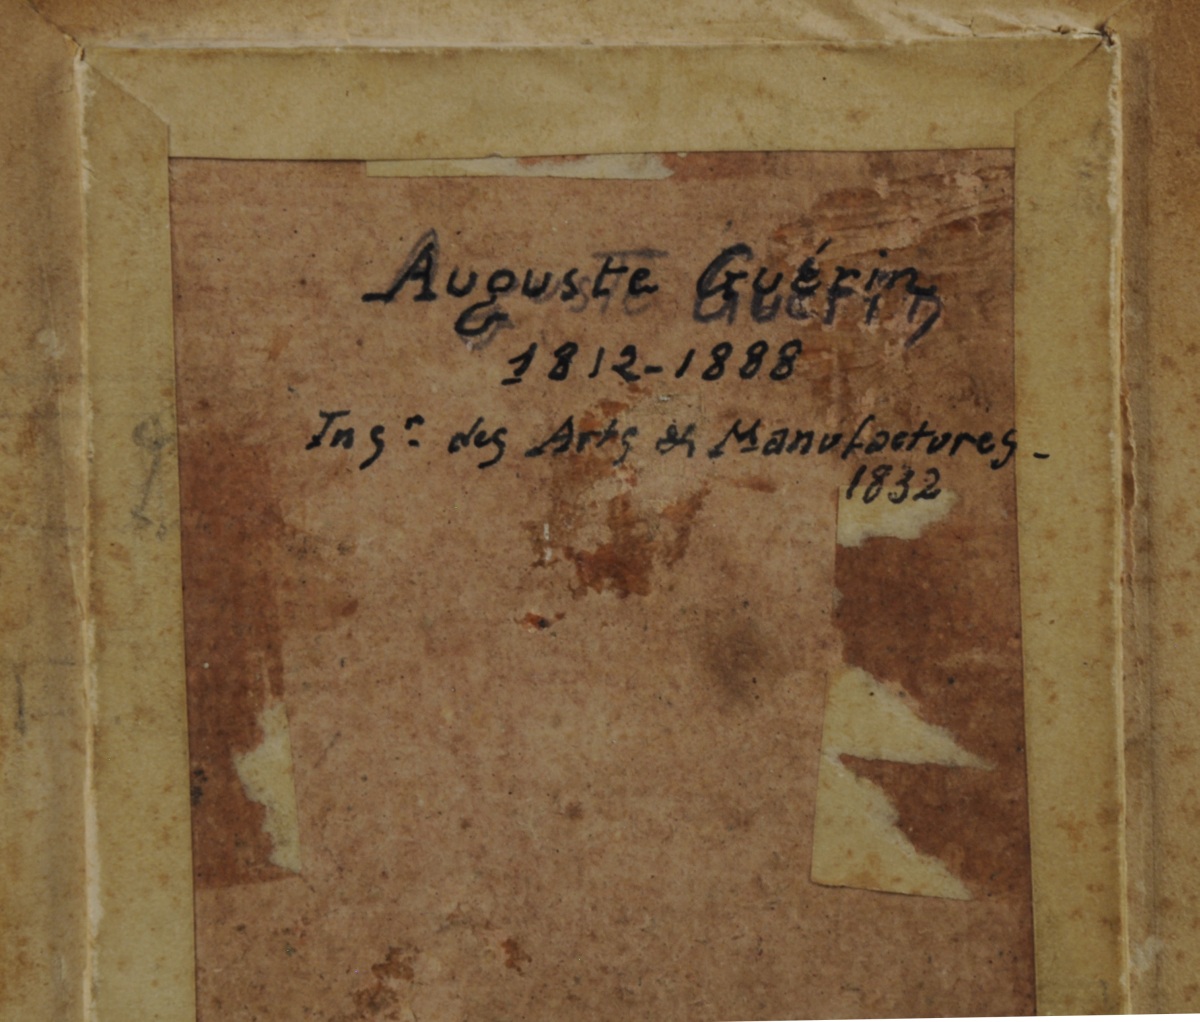 Auguste Guérin
1812-1888
Ingr. des Arts & Manufactures-
1832